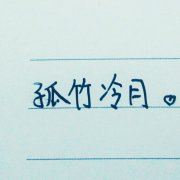 孤竹冷月。